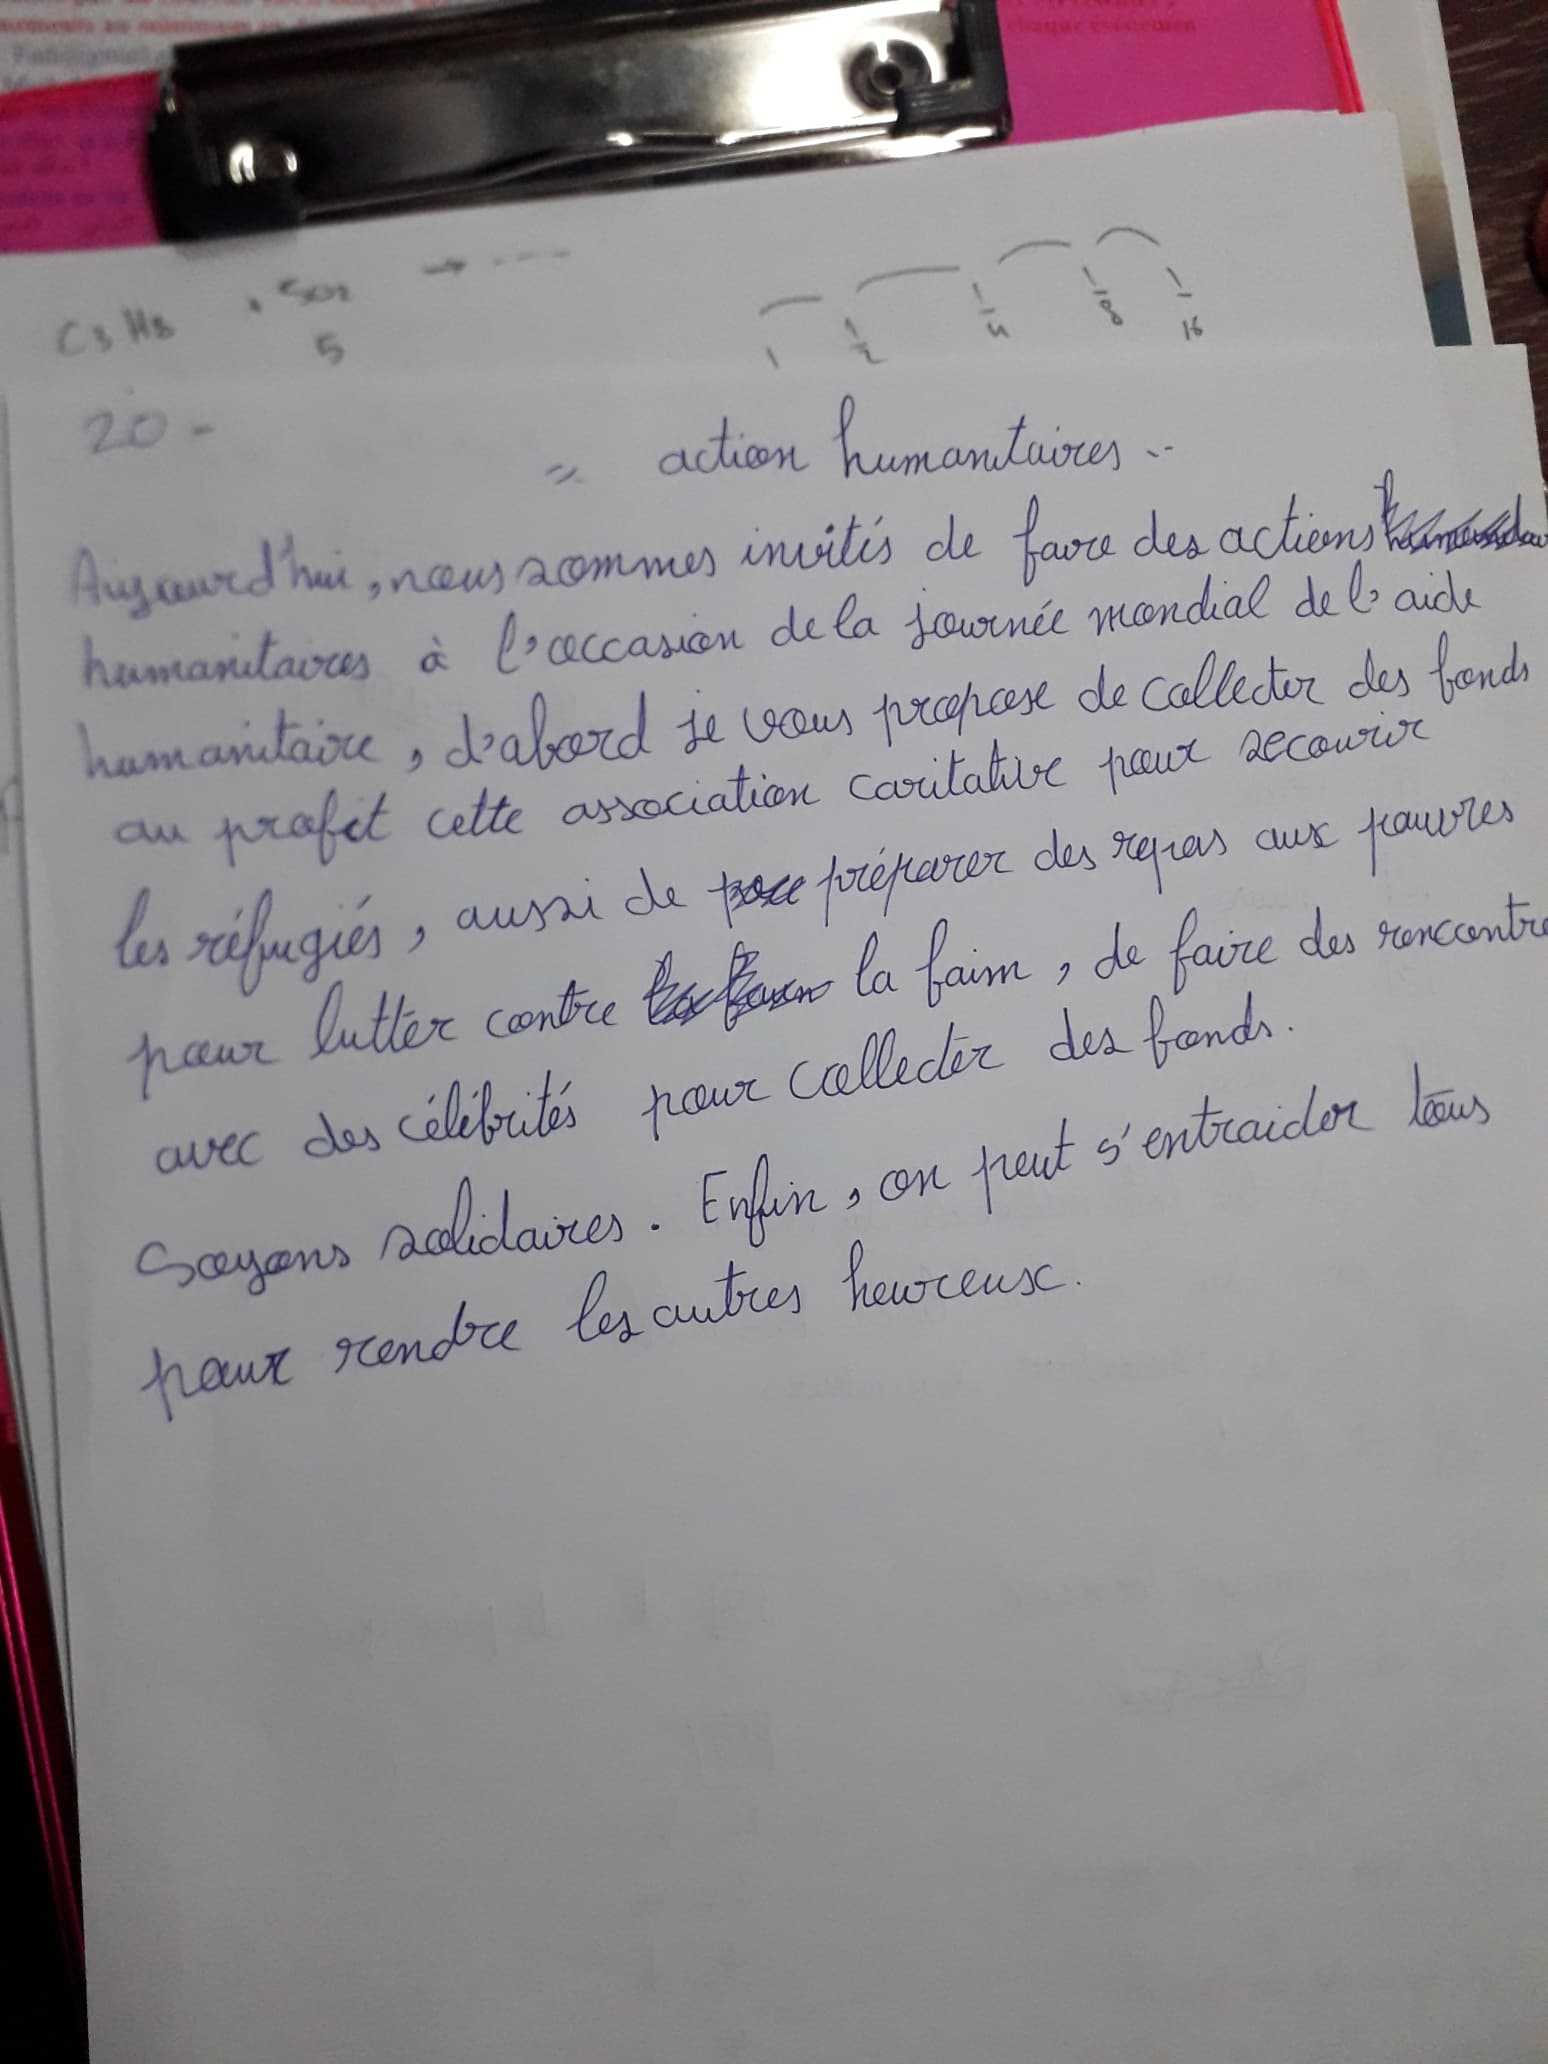 chaque événemen
C3H8 + 5O2 → ----
5
1 1/2 1/4 1/8 1/16
20 -
= action humanitaires ..
Aujourd'hui, nous sommes invités de faire des actions
humanitaires à l'occasion de la journée mondial de l'aide
humanitaire, d'abord je vous propose de collecter des fonds
au profit cette association caritative pour secourir
les réfugiés, aussi de préparer des repas aux pauvres
pour lutter contre la faim, de faire des rencontre
avec des célébrités pour collecter des fonds.
Soyons solidaires. Enfin, on peut s'entraider tous
pour rendre les autres heureux.